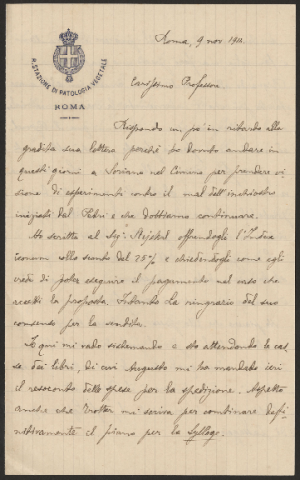 R. STAZIONE DI PATOLOGIA VEGETALE
ROMA
Roma, 9 nov. 1911
Carissimo Professore
Rispondo un po' in ritardo alla
gradita sua lettera perché ho dovuto andare in
questi giorni a Soriano nel Cimino per prendere vi-
sione di esperimenti contro il mal dell'inchiostro
iniziati dal Petri e che dobbiamo continuare.
Ho scritto al Sig. offrendogli l'Index
iconum collo sconto del 25% e chiedendogli come egli
creda di poter eseguire il pagamento nel caso che
accetti la proposta. Intanto la ringrazio del suo
consenso per la vendita.
Io qui mi vado sistemando e sto attendendo le cas-
se dei libri, di cui Augusto mi ha mandato ieri
il resoconto delle spese per la spedizione. Aspetto
anche che Trotter mi scriva per combinare defi-
nitivamente il piano per la Sylloge.